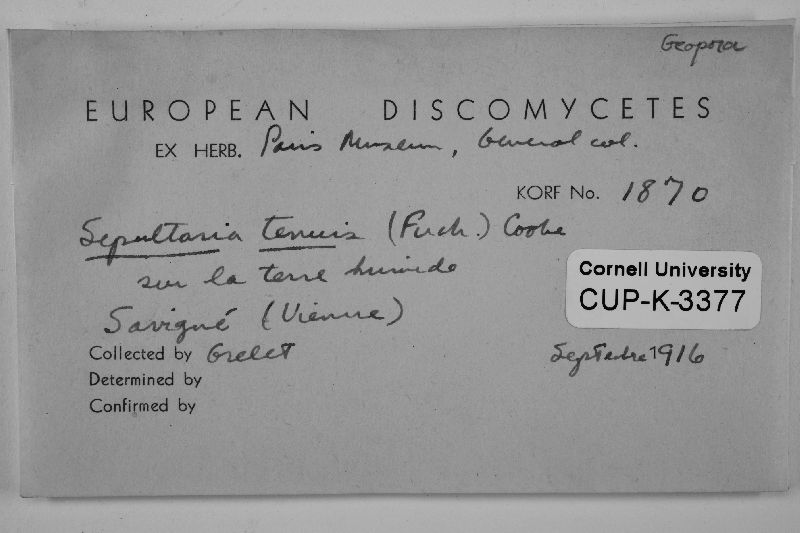 Geopora
EUROPEAN DISCOMYCETES
EX HERB. Paris Museum, General col.
KORF No. 1870
Sepultaria tenuis (Fuck.) Cooke
sur la terre humide
Savigné (Vienne)
Cornell University
CUP-K-3377
Collected by Grelet Septembre 1916
Determined by
Confirmed by